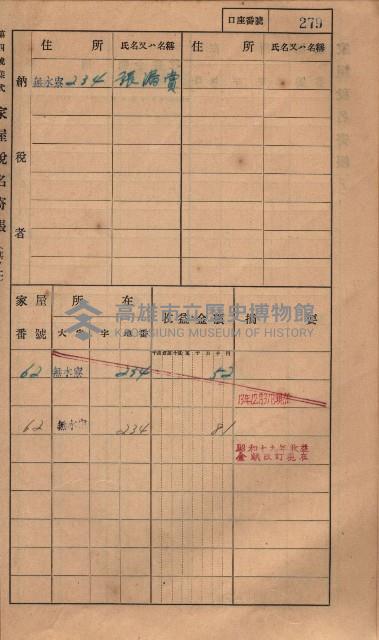 口座番號 279
第四號樣式 家屋稅名寄帳
納稅者
住所 氏名又ハ名稱 住所 氏名又ハ名稱
無水寮 234 張滿賞
家屋番號 所在 大字 字 地番 收益金額 摘要
高雄市立歷史博物館
KAOHSIUNG MUSEUM OF HISTORY
62 無水寮 234 52
62 無水寮 234 81
昭和十九年收益
金額改訂現在